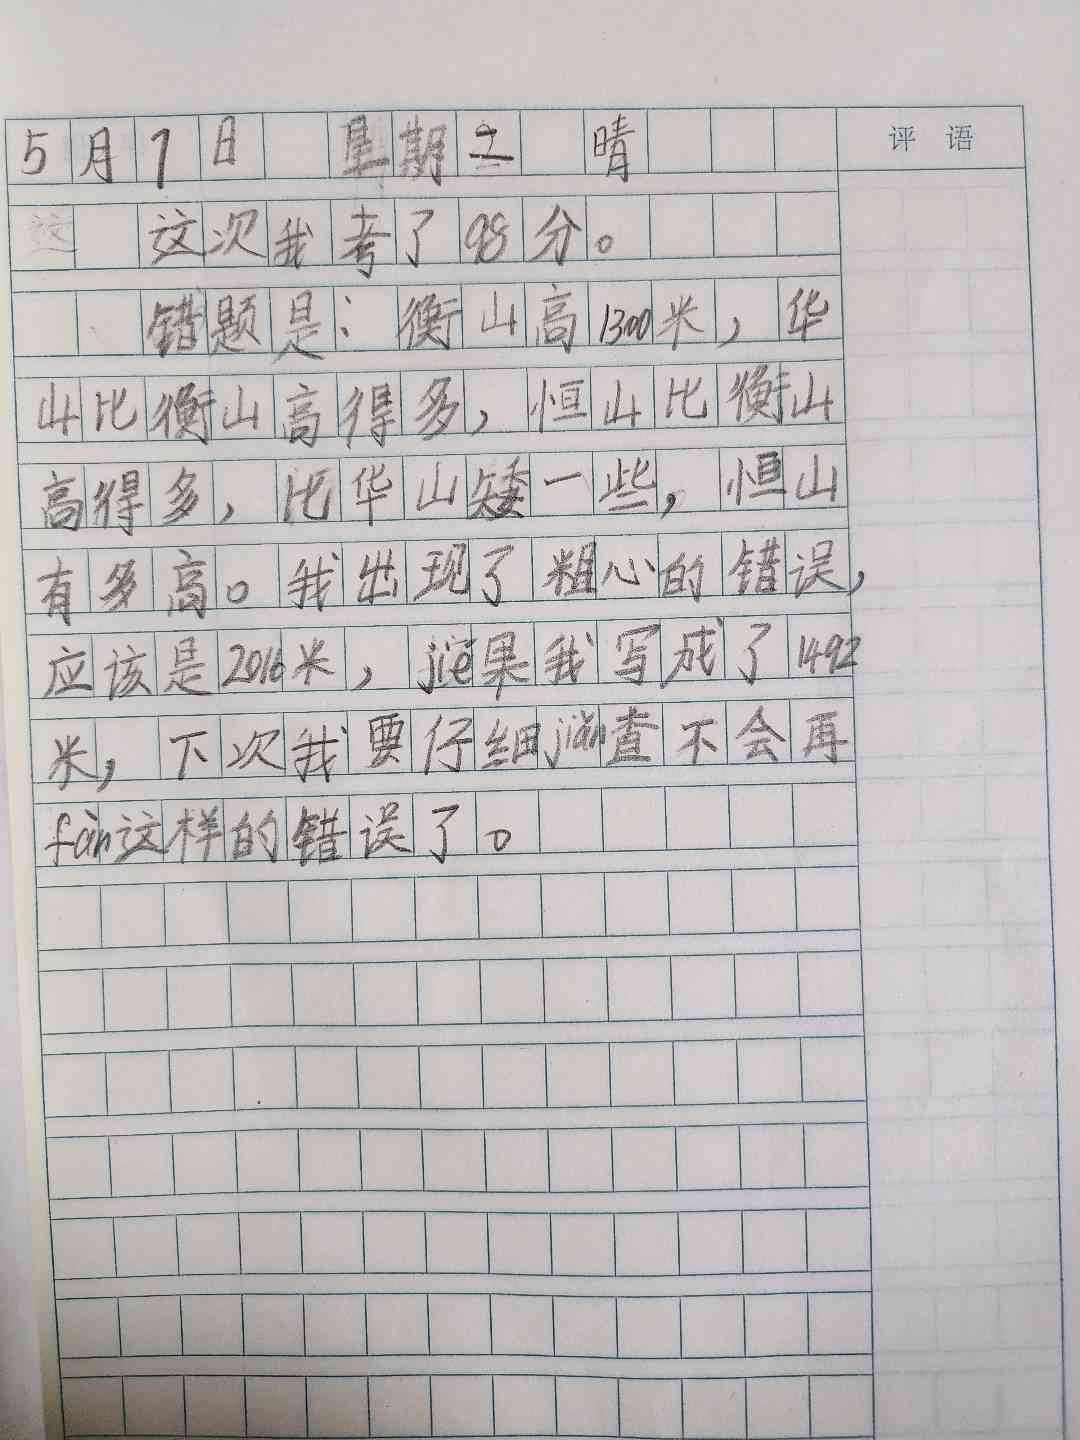 5月1日 星期二 晴
评 语
这 这次我考了98分。
错题是：衡山高1300米，华
山比衡山高得多，恒山比衡山
高得多，比华山矮一些，恒山
有多高。我出现了粗心的错误，
应该是2016米，jié果我写成了1492
米，下次我要仔细jiǎn查不会再
fàn这样的错误了。